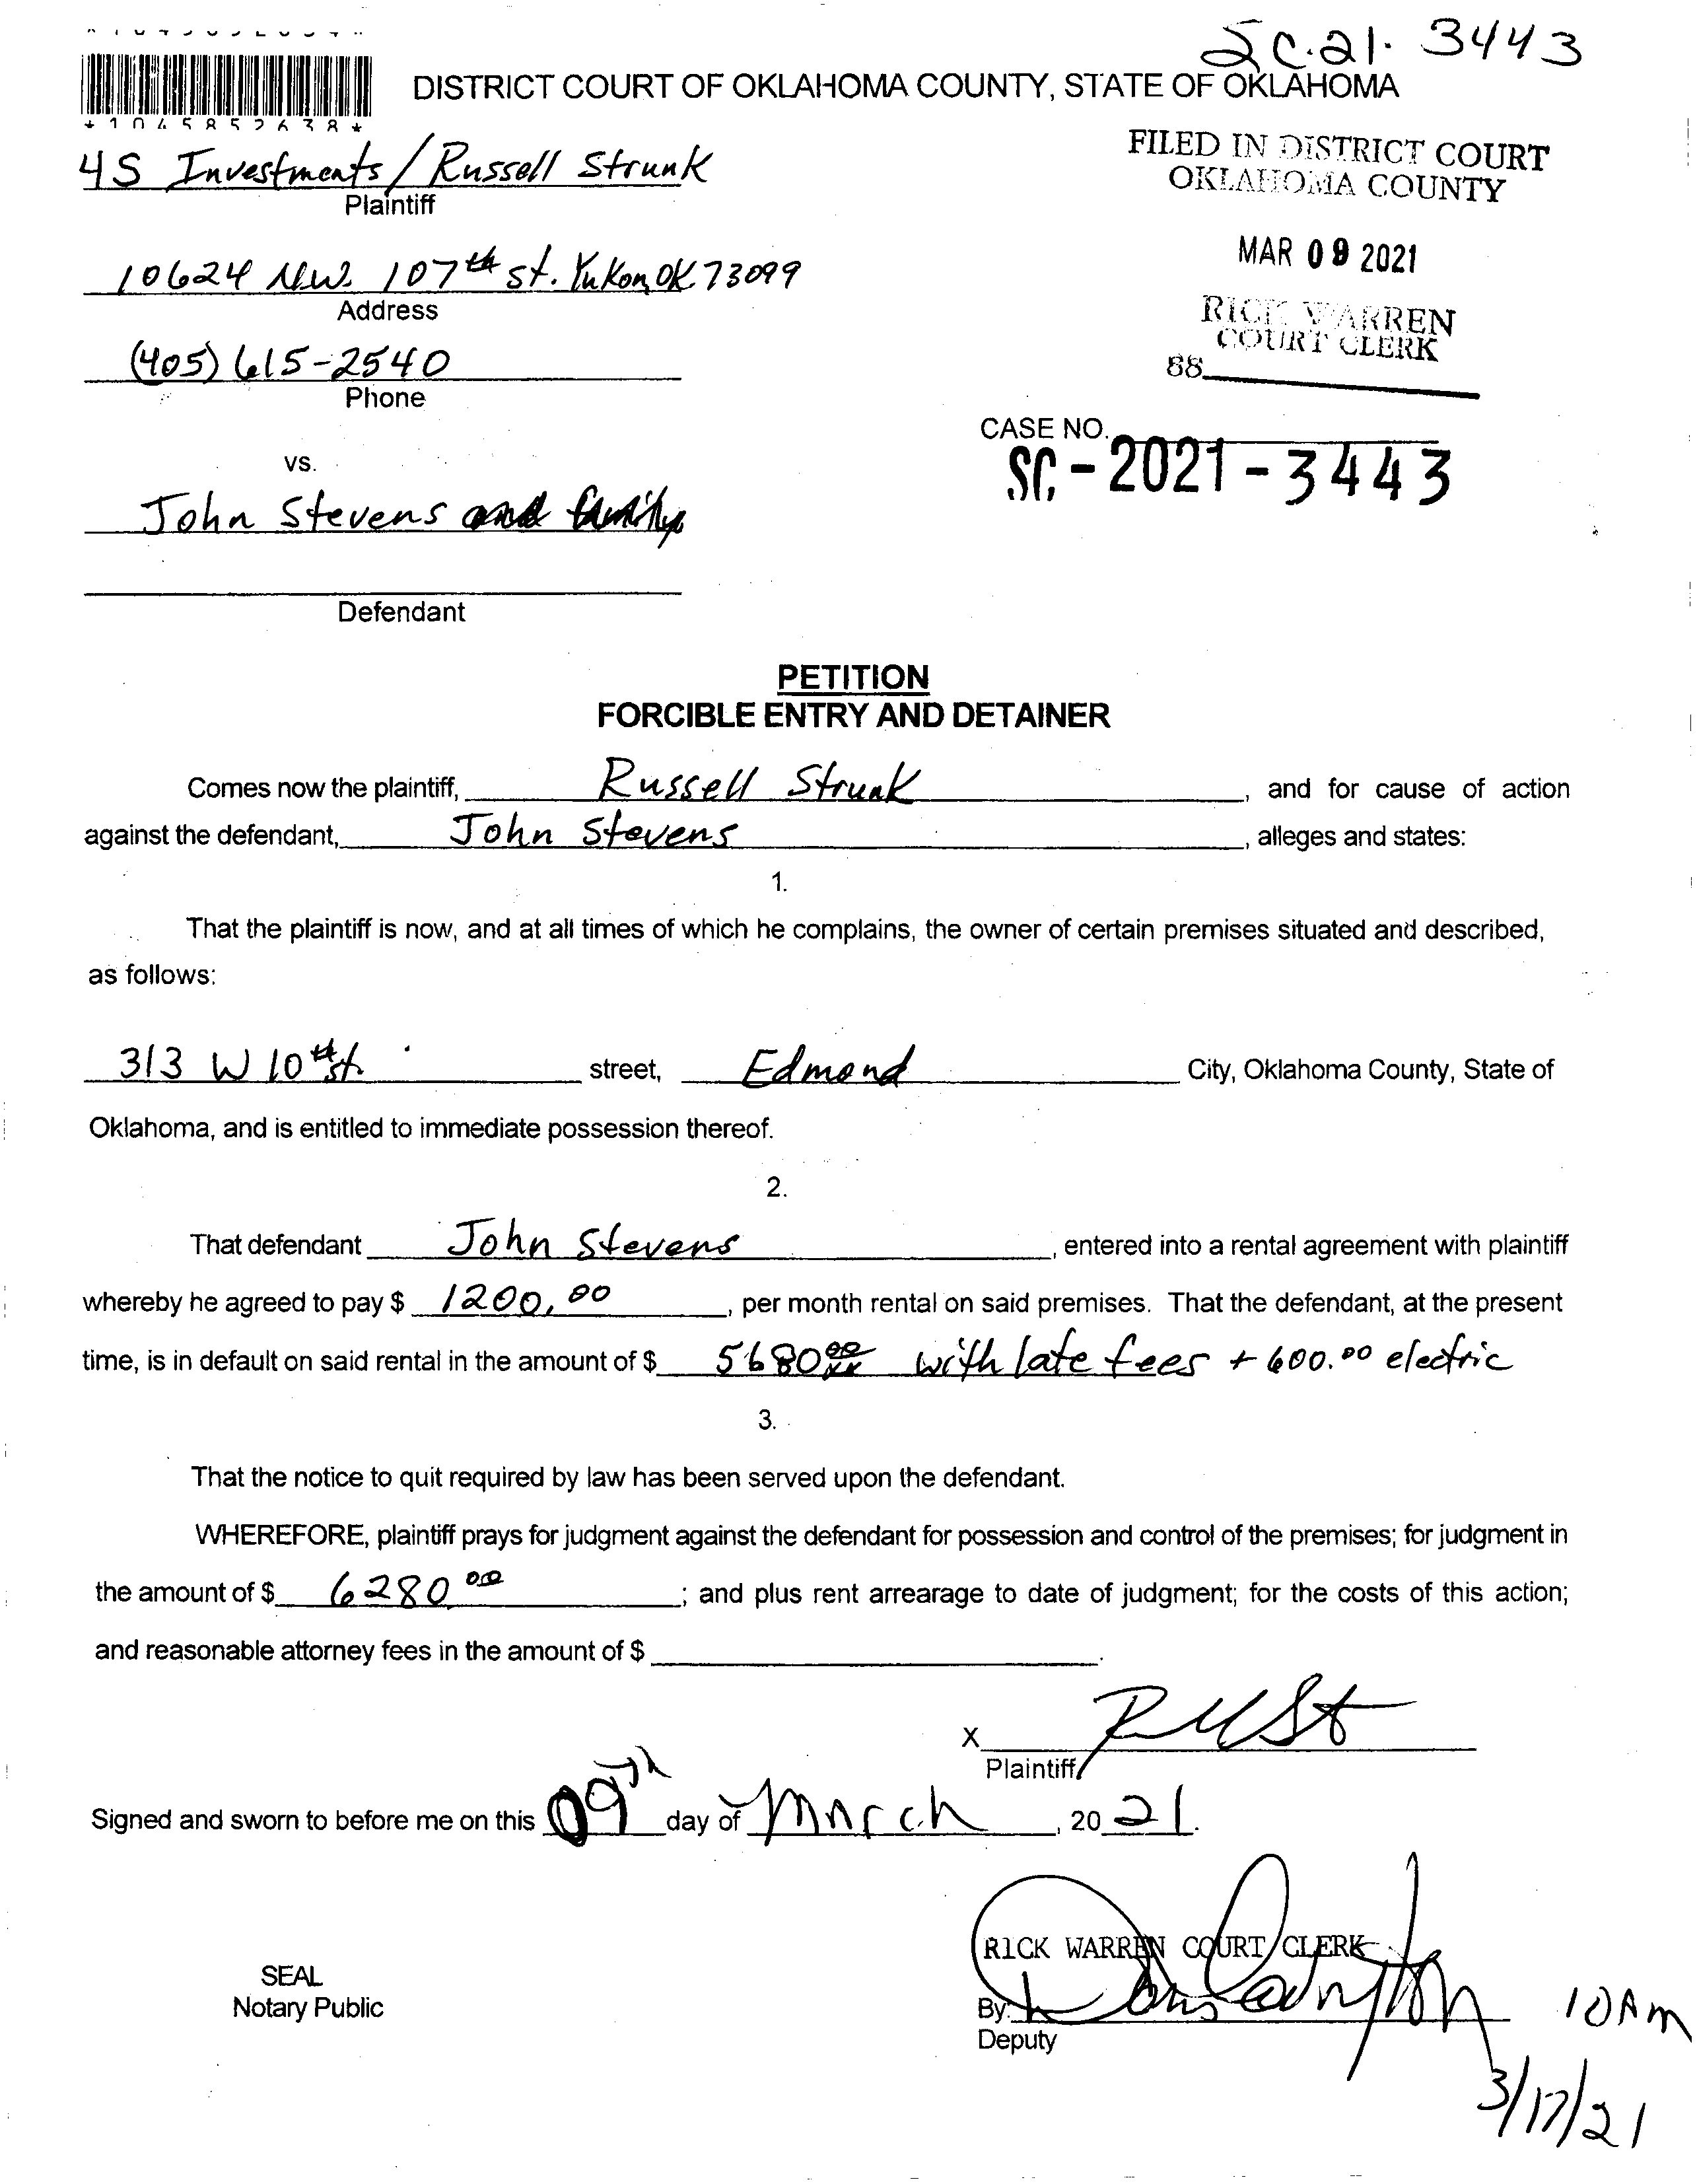 SC.21. 3443
DISTRICT COURT OF OKLAHOMA COUNTY, STATE OF OKLAHOMA
*1045852638*
4S Investments / Russell Strunk
Plaintiff
FILED IN DISTRICT COURT
OKLAHOMA COUNTY
MAR 09 2021
RICK WARREN
COURT CLERK
88
10624 N.W. 107th St. Yukon, OK 73099
Address
(405) 615-2540
Phone
CASE NO.
SC - 2021 - 3443
vs.
John Stevens and family
Defendant
PETITION
FORCIBLE ENTRY AND DETAINER
Comes now the plaintiff, Russell Strunk, and for cause of action
against the defendant, John Stevens, alleges and states:
1.
That the plaintiff is now, and at all times of which he complains, the owner of certain premises situated and described,
as follows:
313 W 10th st. street, Edmond City, Oklahoma County, State of
Oklahoma, and is entitled to immediate possession thereof.
2.
That defendant John Stevens, entered into a rental agreement with plaintiff
whereby he agreed to pay $ 1200.00, per month rental on said premises. That the defendant, at the present
time, is in default on said rental in the amount of $ 5680.00 with late fees + 600.00 electric
3.
That the notice to quit required by law has been served upon the defendant.
WHEREFORE, plaintiff prays for judgment against the defendant for possession and control of the premises; for judgment in
the amount of $ 6280.00; and plus rent arrearage to date of judgment; for the costs of this action;
and reasonable attorney fees in the amount of $
X
Plaintiff
Signed and sworn to before me on this 09th day of March, 2021.
RICK WARREN COURT CLERK
SEAL
Notary Public
By:
Deputy
10 AM
3/17/21